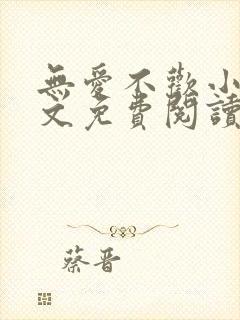 無愛不歡小
文免費閱讀
蔡晋